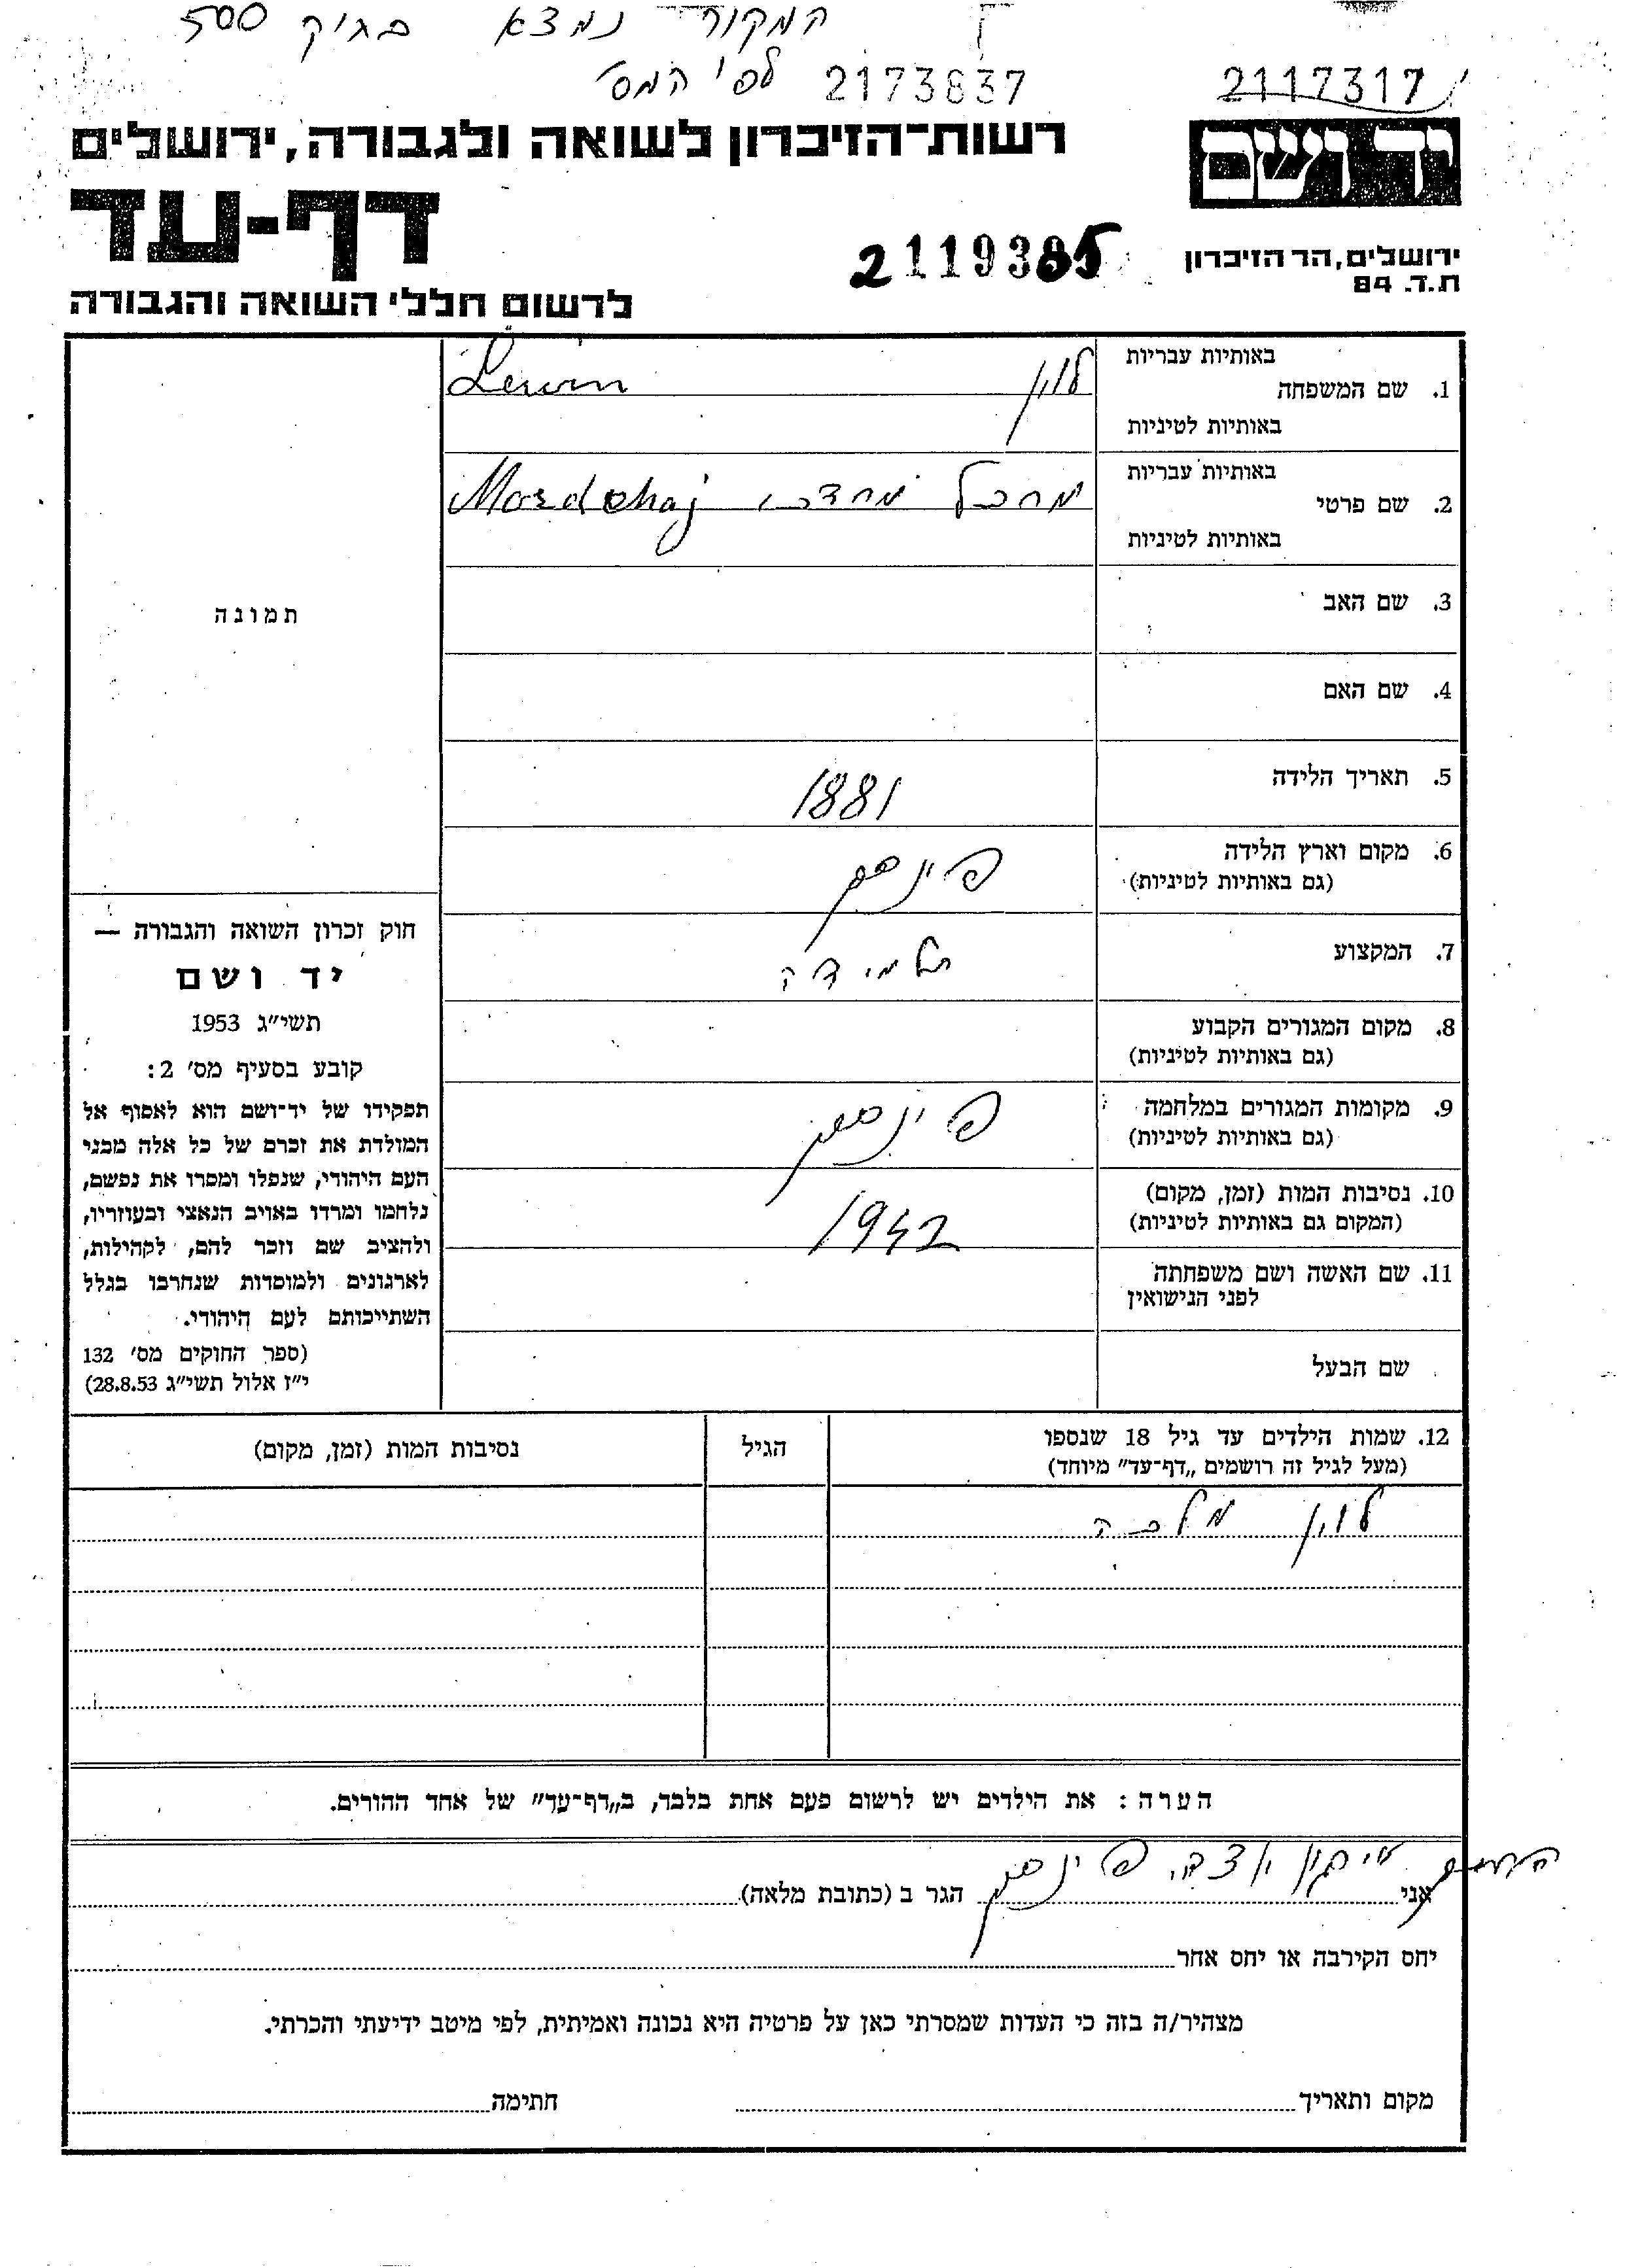 המקור נמצא בתיק 500
2173637 לפי המס'
2117317
רשות-הזיכרון לשואה ולגבורה, ירושלים
יד ושם
דף-עד
2119385
ירושלים, הר הזיכרון
ת.ד. 84
לרשום חללי השואה והגבורה
באותיות עבריות
1. שם המשפחה
באותיות לטיניות
לוין Lewin
באותיות עבריות
2. שם פרטי
באותיות לטיניות
מרדכי Mordchaj
תמונה
3. שם האב
4. שם האם
5. תאריך הלידה
1881
6. מקום וארץ הלידה
(גם באותיות לטיניות)
פינסק
7. המקצוע
תלמידה
8. מקום המגורים הקבוע
(גם באותיות לטיניות)
9. מקומות המגורים במלחמה
(גם באותיות לטיניות)
פינסק
10. נסיבות המות (זמן, מקום)
(המקום גם באותיות לטיניות)
1942
11. שם האשה ושם משפחתה
לפני הנישואין
שם הבעל
חוק זכרון השואה והגבורה —
יד ושם
תשי״ג 1953
קובע בסעיף מס׳ 2:
תפקידו של יד-ושם הוא לאסוף אל
המולדת את זכרם של כל אלה מבני
העם היהודי, שנפלו ומסרו את נפשם,
נלחמו ומרדו באויב הנאצי ובעוזריו,
ולהציב שם וזכר להם, לקהילות,
לארגונים ולמוסדות שנחרבו בגלל
השתייכותם לעם היהודי.
(ספר החוקים מס׳ 132
י״ז אלול תשי״ג 28.8.53)
12. שמות הילדים עד גיל 18 שנספו
(מעל לגיל זה רושמים „דף-עד״ מיוחד)
הגיל
נסיבות המות (זמן, מקום)
לוין מלכה
הערה: את הילדים יש לרשום פעם אחת בלבד, ב„דף-עד״ של אחד ההורים.
פינסק
אני הגר ב (כתובת מלאה)
יחס הקירבה או יחס אחר
מצהיר/ה בזה כי העדות שמסרתי כאן על פרטיה היא נכונה ואמיתית, לפי מיטב ידיעתי והכרתי.
מקום ותאריך חתימה